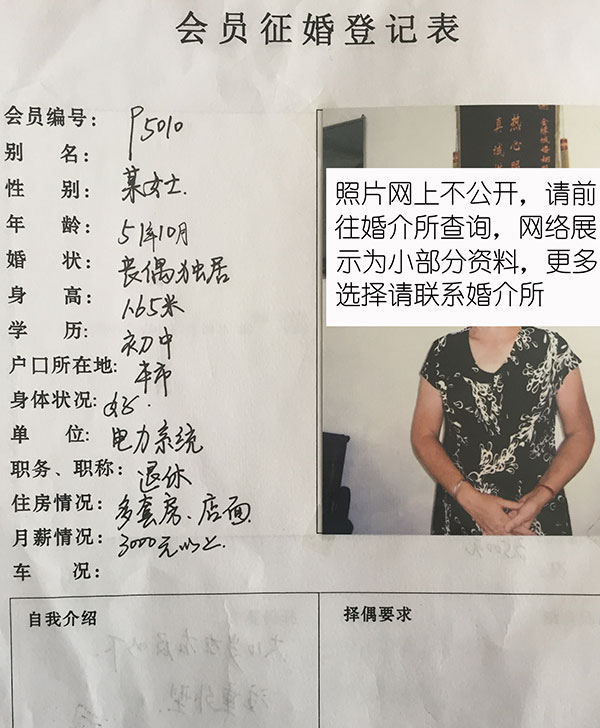 会员征婚登记表
会员编号: P5010
别 名:
性 别: 某女士.
年 龄: 51年10月
婚 状: 丧偶独居
身 高: 1.65米
学 历: 初中
户口所在地: 本市
身体状况: 好.
单 位: 电力系统
职务、职称: 退休
住房情况: 多套房、店面
月薪情况: 3000元以上.
车 况:
热心
真诚
照片网上不公开，请前
往婚介所查询，网络展
示为小部分资料，更多
选择请联系婚介所
自我介绍
择偶要求